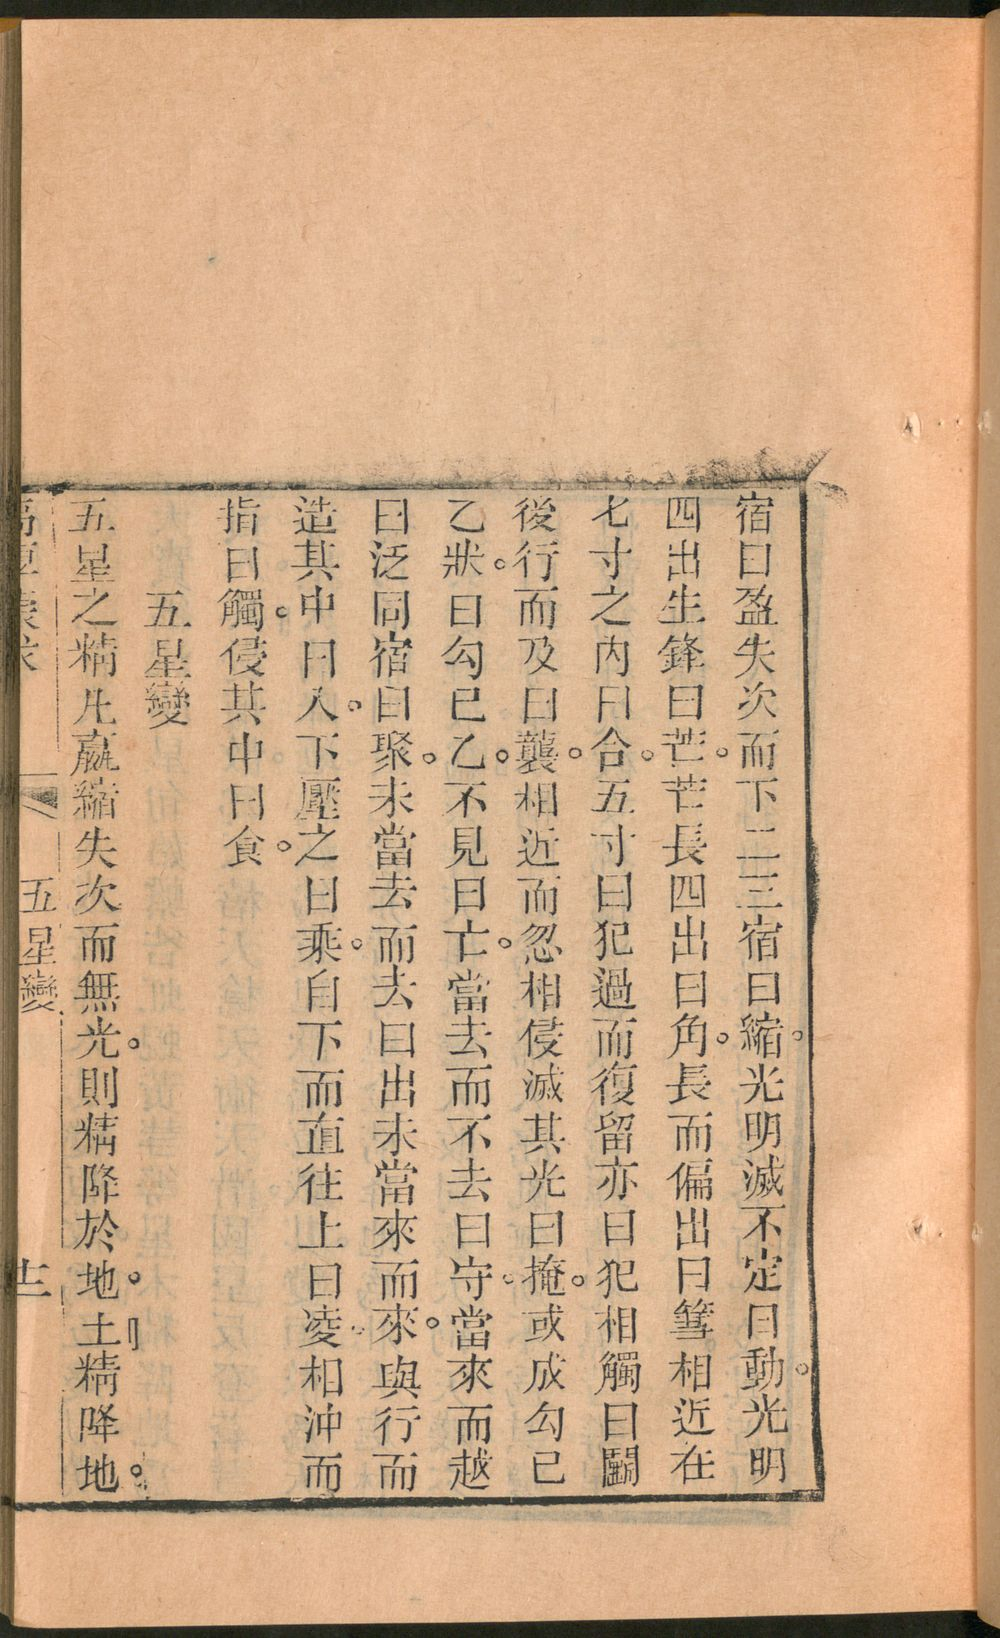 宿曰盈失次而下二三宿曰縮。光明滅不定曰動。光明
四出生鋒曰芒。芒長四出曰角。長而偏出曰篲相近在
七寸之內曰合。五寸曰犯過而復留亦曰犯相觸曰鬭
後行而及曰襲。相近而忽相侵滅其光曰掩。或成勾已
乙狀。曰勾已乙。不見曰亡。當去而不去曰守。當來而越
曰泛同宿曰聚。未當去而去曰出未當來而來。與行而
造其中曰入。下壓之曰乘。自下而直往上曰凌。相沖而
指曰觸。侵其中曰食。
五星變
五星之精凡嬴縮失次而無光。則精降於地。土精降地。
五星變